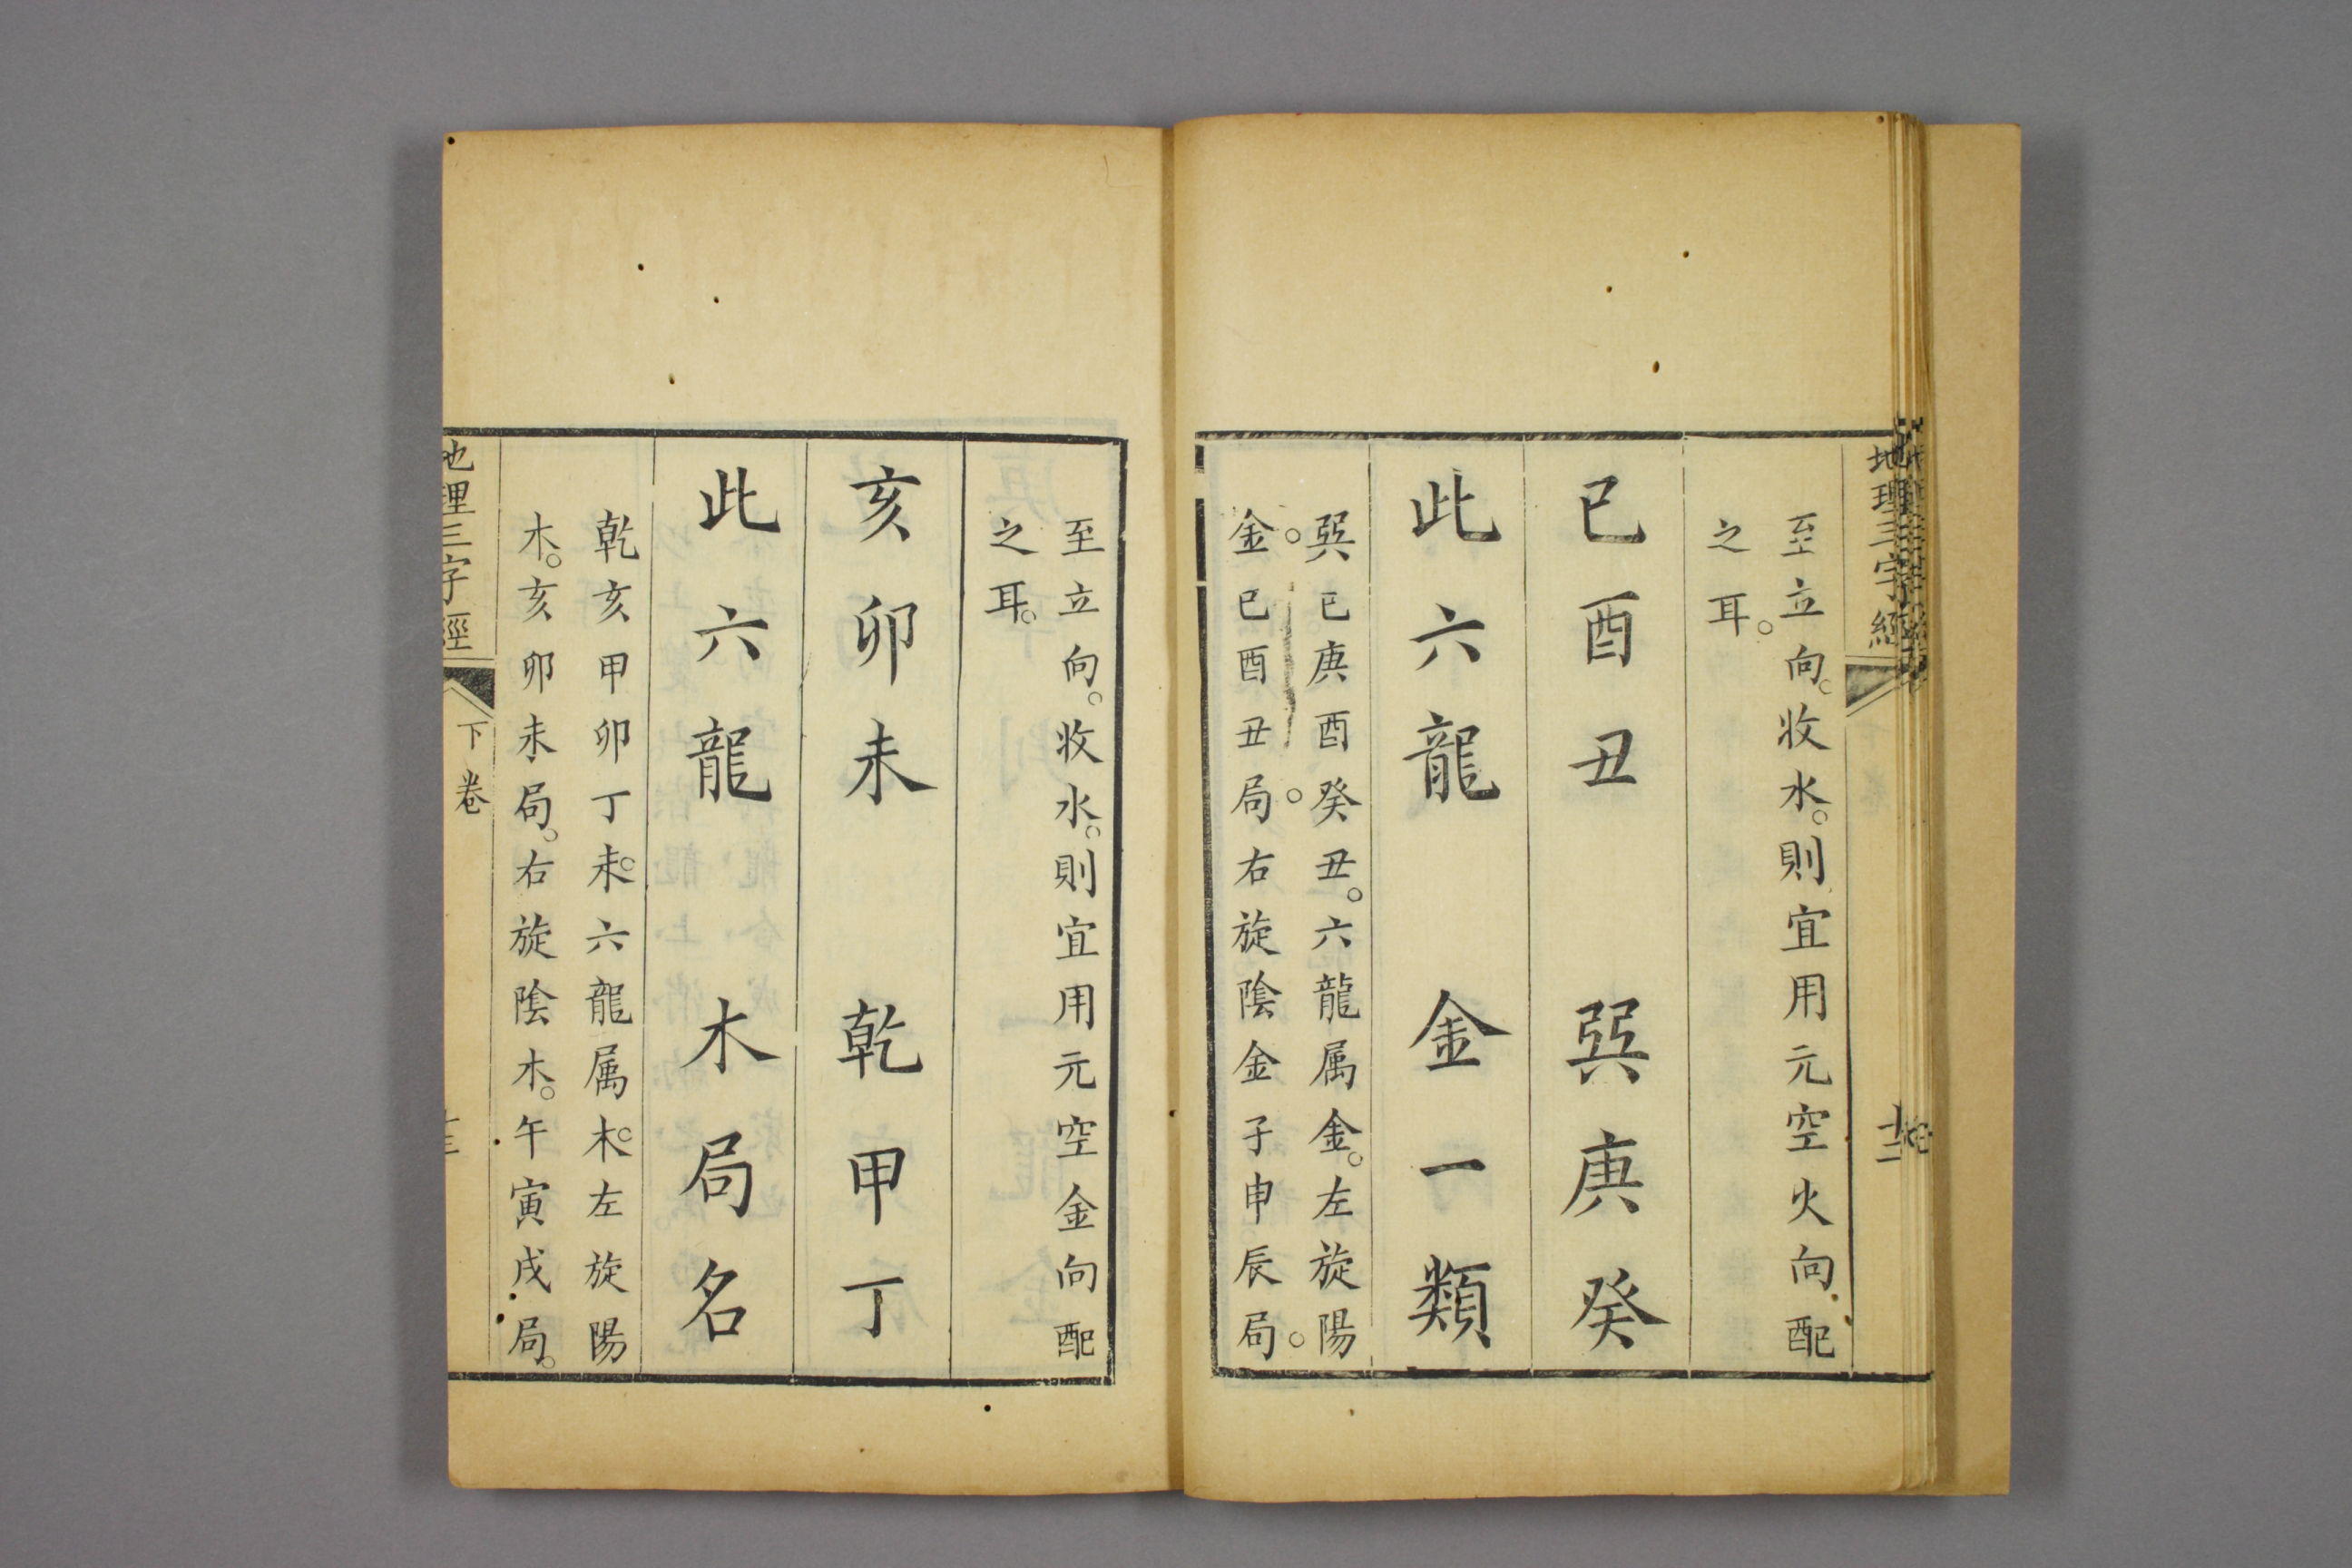 地理三字經
十二
至立向。收水。則宜用元空火向配
之耳。
巳酉丑 巽庚癸
此六龍 金一類
巽巳庚酉癸丑。六龍属金。左旋陽
金。巳酉丑局。右旋陰金子申辰局。
至立向。收水。則宜用元空金向配
之耳。
亥卯未 乾甲丁
此六龍 木局名
乾亥甲卯丁未。六龍属木。左旋陽
木。亥卯未局。右旋陰木。午寅戌局。
地理三字經
下卷
十三